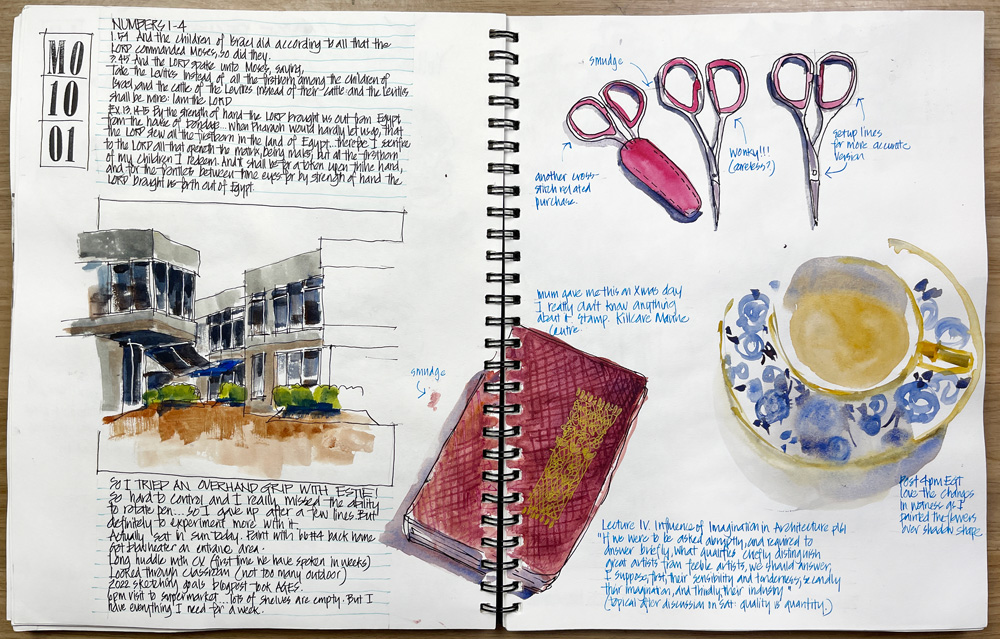 MO
10
01
NUMBERS 1-4
1.54 And the children of Israel did according to all that the
LORD commanded Moses, so did they.
3.45 And the LORD spake unto Moses, saying,
Take the Levites instead of all the firstborn among the children of
Israel, and the cattle of the Levites instead of their cattle and the Levites
shall be mine: I am the LORD
Ex 13.14-15 By the strength of hand the LORD brought us out from Egypt
from the house of bondage... When Pharaoh would hardly let us go, that
the LORD slew all the firstborn in the land of Egypt... therefore I sacrifice
to the LORD all that openeth the matrix, being males, but all the firstborn
of my children I redeem. And it shall be for a token upon thine hand,
and for the frontlets between thine eyes for by strength of hand the
LORD brought us forth out of Egypt.
SO I TRIED AN OVERHAND GRIP WITH ESTIE!
So hard to control, and I really missed the ability
to rotate pen.... so I gave up after a few lines. But
definitely to experiment more with it.
Actually sat in sun today. Paint with back home
at entrance area.
Long huddle with CV (first time we have spoken in weeks)
Looked through classroom (not too many outdoor)
2022 sketching goals blogpost took AGES.
6pm visit to supermarket... lots of shelves are empty. But I
have everything I need for a week.
smudge
smudge
another cross-
stitch related
purchase.
Wonky!!!
(careless?)
setup lines
for more accurate
version
mum gave me this on Xmas day
I really don't know anything
about it. Stamp. Killcare Marine
Centre.
Post 4pm EGT
love the changes
in wetness as I
painted the flowers
over shadow shape
Lecture IV. Influence of Imagination in Architecture p161
"If we were to be asked abruptly, and required to
answer briefly, what qualities chiefly distinguish
great artists from feeble artists, we should answer,
I suppose, first, their sensibility and tenderness; secondly
their imagination, and thirdly, their industry"
(topical after discussion on Sat: quality vs quantity.)